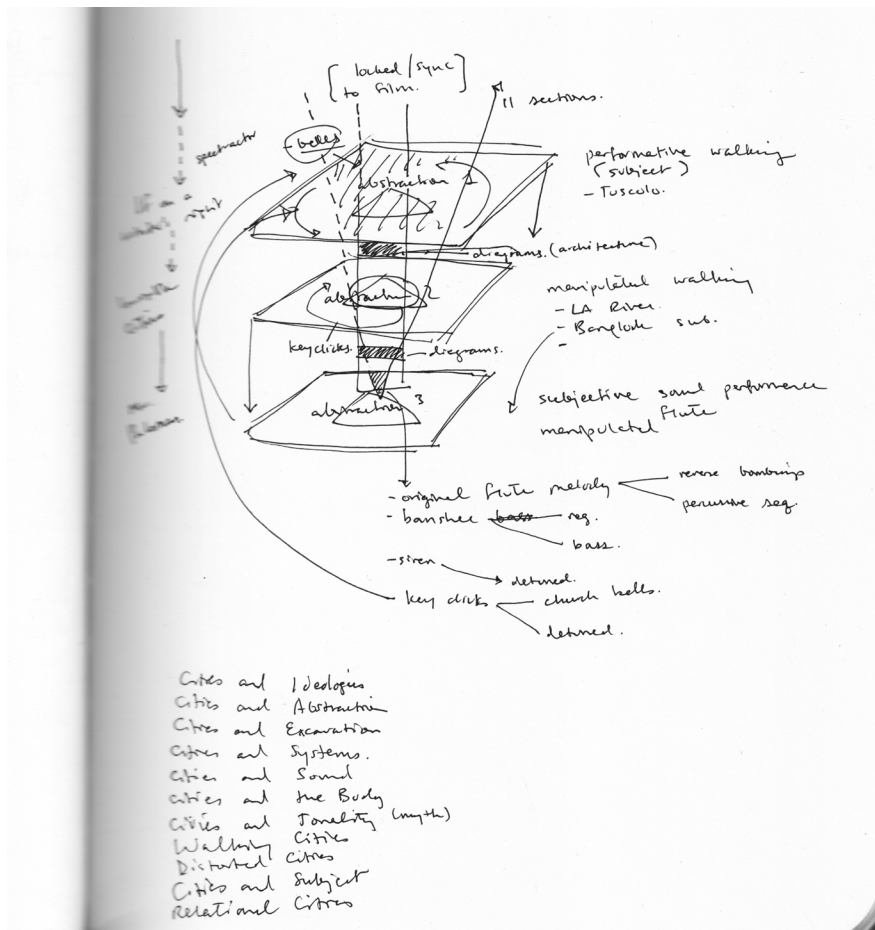 [locked/sync]
to film.
11 sections.
- bells
spectractor
performative walking
(subject)
- Tuscolo.
abstraction 1
2
right
- diagrams. (architecture)
manipulated walking
- LA River.
- Bangkok sub.
-
abstraction 2
keyclicks.
- diagrams.
abstraction 3
subjective sound performance
manipulated flute
- original flute melody
reverse
percussive seq.
- banshee
reg.
bass.
- siren
detuned.
key clicks
church bells.
detuned.
Cities and Ideologies
Cities and Abstraction
Cities and Excavation
Cities and Systems.
Cities and Sound
Cities and the Body
Cities and Tonality (myth)
Walking Cities
Distorted Cities
Cities and Subject
Relational Cities